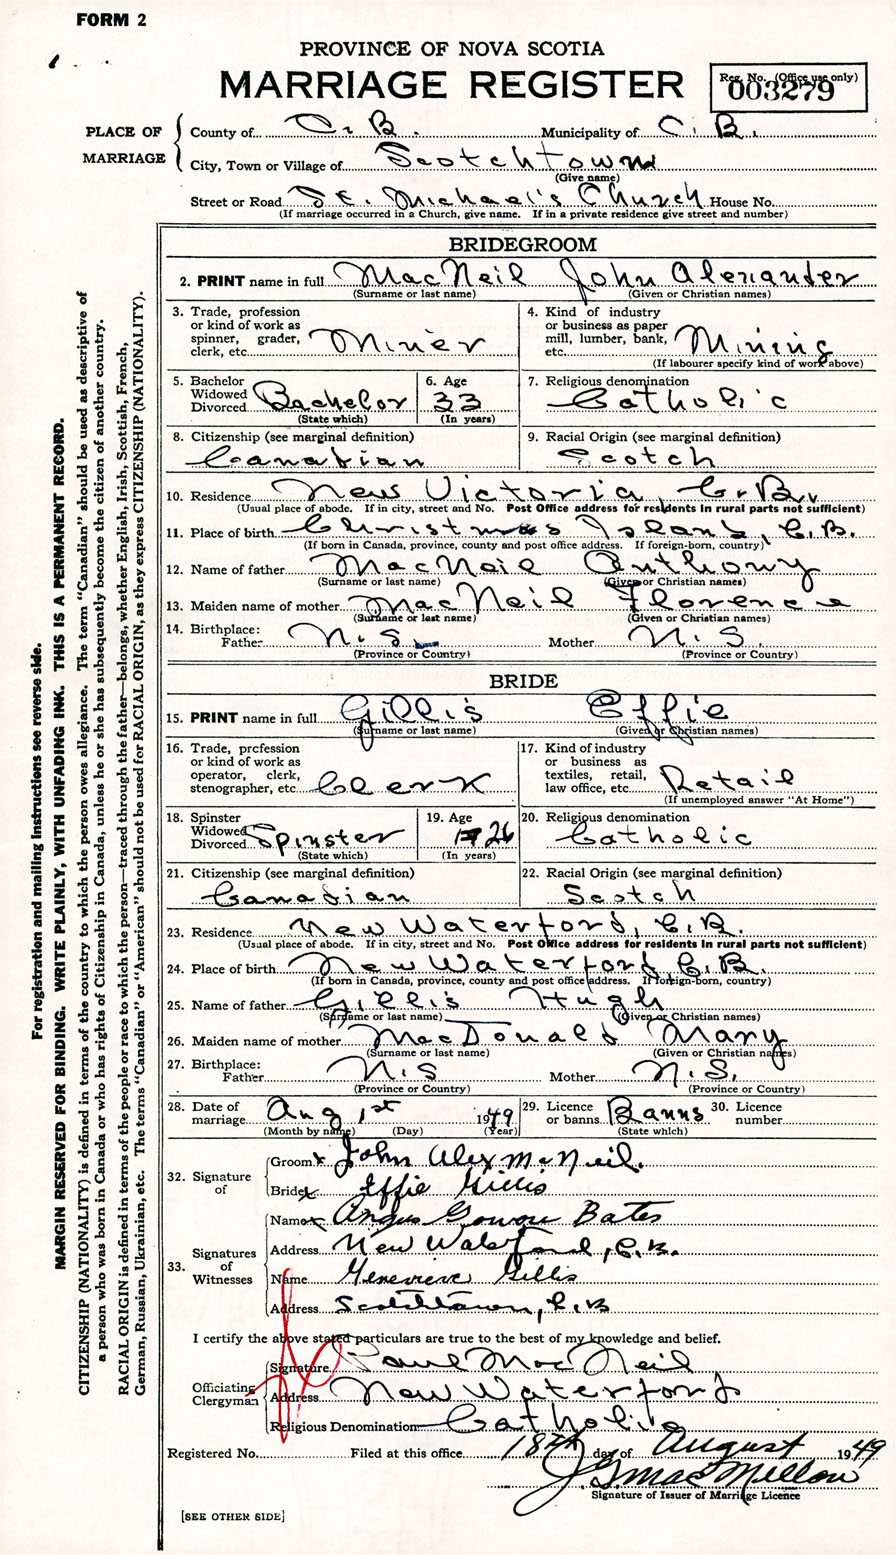 FORM 2
PROVINCE OF NOVA SCOTIA
MARRIAGE REGISTER
Reg. No. (Office use only)
003279
PLACE OF MARRIAGE
County of C. B. Municipality of C. B.
City, Town or Village of Scotchtown
(Give name)
Street or Road St. Michael's Church House No.
(If marriage occurred in a Church, give name. If in a private residence give street and number)
BRIDEGROOM
2. PRINT name in full MacNeil John Alexander
(Surname or last name) (Given or Christian names)
3. Trade, profession or kind of work as spinner, grader, clerk, etc. Miner
4. Kind of industry or business as paper mill, lumber, bank, etc. Mining
(If labourer specify kind of work above)
5. Bachelor Widowed Divorced Bachelor
(State which)
6. Age 33
(In years)
7. Religious denomination Catholic
8. Citizenship (see marginal definition) Canadian
9. Racial Origin (see marginal definition) Scotch
10. Residence New Victoria, C.B.
(Usual place of abode. If in city, street and No. Post Office address for residents in rural parts not sufficient)
11. Place of birth Christmas Island, C.B.
(If born in Canada, province, county and post office address. If foreign-born, country)
12. Name of father MacNeil Anthony
(Surname or last name) (Given or Christian names)
13. Maiden name of mother MacNeil Florence
(Surname or last name) (Given or Christian names)
14. Birthplace:
Father N.S. Mother N.S.
(Province or Country) (Province or Country)
BRIDE
15. PRINT name in full Gillis Effie
(Surname or last name) (Given or Christian names)
16. Trade, profession or kind of work as operator, clerk, stenographer, etc. Clerk
17. Kind of industry or business as textiles, retail, law office, etc. Retail
(If unemployed answer "At Home")
18. Spinster Widowed Divorced Spinster
(State which)
19. Age 26
(In years)
20. Religious denomination Catholic
21. Citizenship (see marginal definition) Canadian
22. Racial Origin (see marginal definition) Scotch
23. Residence New Waterford, C.B.
(Usual place of abode. If in city, street and No. Post Office address for residents in rural parts not sufficient)
24. Place of birth New Waterford, C.B.
(If born in Canada, province, county and post office address. If foreign-born, country)
25. Name of father Gillis Hugh
(Surname or last name) (Given or Christian names)
26. Maiden name of mother MacDonald Mary
(Surname or last name) (Given or Christian names)
27. Birthplace:
Father N.S Mother N.S.
(Province or Country) (Province or Country)
28. Date of marriage Aug 1st 1949
(Month by name) (Day) (Year)
29. Licence or banns Banns
(State which)
30. Licence number
32. Signature of
Groom x John Alex McNeil.
Bride x Effie Gillis
33. Signatures of Witnesses
Name x Angus Bates
Address New Waterford, C.B.
Name Genevieve Gillis
Address Scotchtown, C.B
I certify the above stated particulars are true to the best of my knowledge and belief.
Officiating Clergyman
Signature Paul MacNeil
Address New Waterford
Religious Denomination Catholic
Registered No. Filed at this office 18th day of August 1949
J.G. MacMillan
Signature of Issuer of Marriage Licence
[SEE OTHER SIDE]
For registration and mailing instructions see reverse side.
MARGIN RESERVED FOR BINDING. WRITE PLAINLY, WITH UNFADING INK. THIS IS A PERMANENT RECORD.
CITIZENSHIP (NATIONALITY) is defined in terms of the country to which the person owes allegiance. The term "Canadian" should be used as descriptive of
a person who was born in Canada or who has rights of Citizenship in Canada, unless he or she has subsequently become the citizen of another country.
RACIAL ORIGIN is defined in terms of the people or race to which the person—traced through the father—belongs, whether English, Irish, Scottish, French,
German, Russian, Ukrainian, etc. The terms "Canadian" or "American" should not be used for RACIAL ORIGIN, as they express CITIZENSHIP (NATIONALITY).